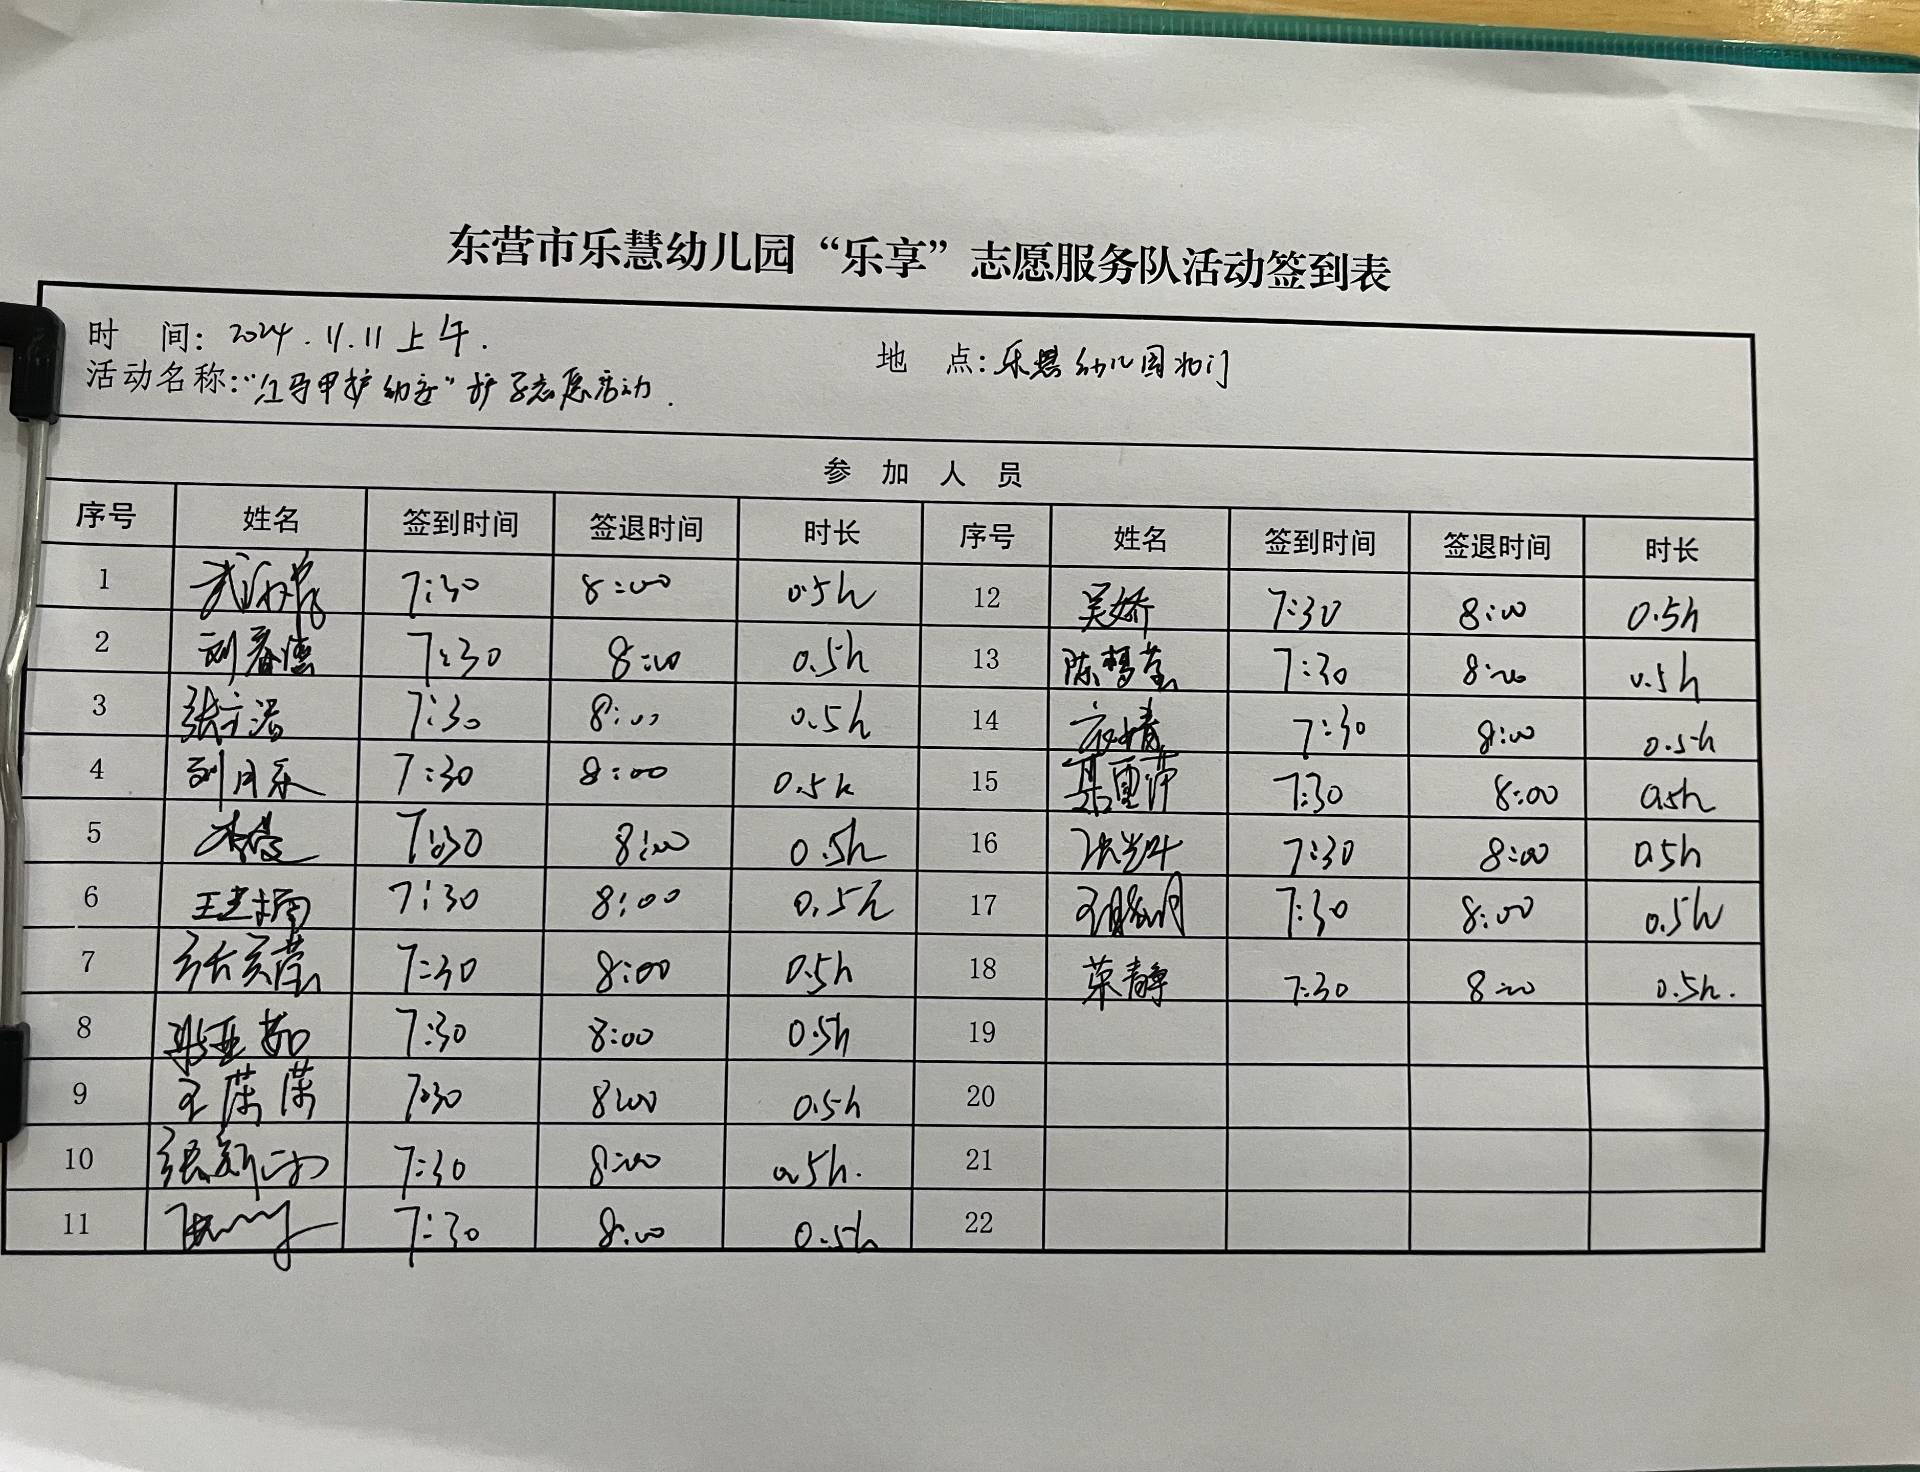 东营市乐慧幼儿园“乐享”志愿服务队活动签到表
时 间：2024.11.11上午.
地 点：乐慧幼儿园北门
活动名称：“红马甲护幼童”护学志愿活动.
参 加 人 员
序号 姓名 签到时间 签退时间 时长 序号 姓名 签到时间 签退时间 时长
1 7:30 8:00 0.5h 12 吴娇 7:30 8:00 0.5h
2 刘春德 7:30 8:00 0.5h 13 陈梦莹 7:30 8:00 0.5h
3 张立浩 7:30 8:00 0.5h 14 7:30 8:00 0.5h
4 刘月乐 7:30 8:00 0.5h 15 7:30 8:00 0.5h
5 7:30 8:00 0.5h 16 7:30 8:00 0.5h
6 7:30 8:00 0.5h 17 7:30 8:00 0.5h
7 7:30 8:00 0.5h 18 荣静 7:30 8:00 0.5h.
8 7:30 8:00 0.5h 19
9 王荣荣 7:30 8:00 0.5h 20
10 7:30 8:00 0.5h. 21
11 7:30 8:00 0.5h 22